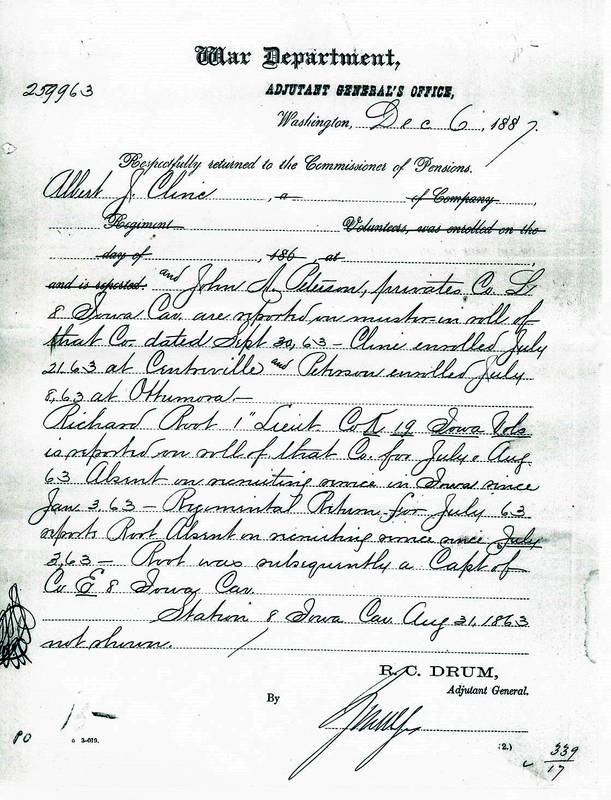 War Department,
259963
ADJUTANT GENERAL'S OFFICE,
Washington, Dec 6, 1887.
Respectfully returned to the Commissioner of Pensions.
Albert J. Cline, a of Company,
Regiment Volunteers, was enrolled on the
day of, 186, at,
and is reported. and John A. Peterson, privates Co L
8 Iowa Cav. are reported on muster-in roll of
that Co. dated Sept 30, 63 – Cline enrolled July
21.63 at Centreville and Peterson enrolled July
8, 63 at Ottumwa. –
Richard Root 1" Lieut Co K 19 Iowa Vols
is reported on roll of that Co. for July & Aug.
63 Absent on recruiting service in Iowa since
Jan 3.63 – Regimental Return for July 63
reports Root Absent on recruiting service since July
2, 63 – Root was subsequently a Capt of
Co E 8 Iowa Cav.
Station 8 Iowa Cav. Aug 31, 1863
not shown.
R. C. DRUM,
Adjutant General.
By
PO
6 3-019.
(2.)
339
17